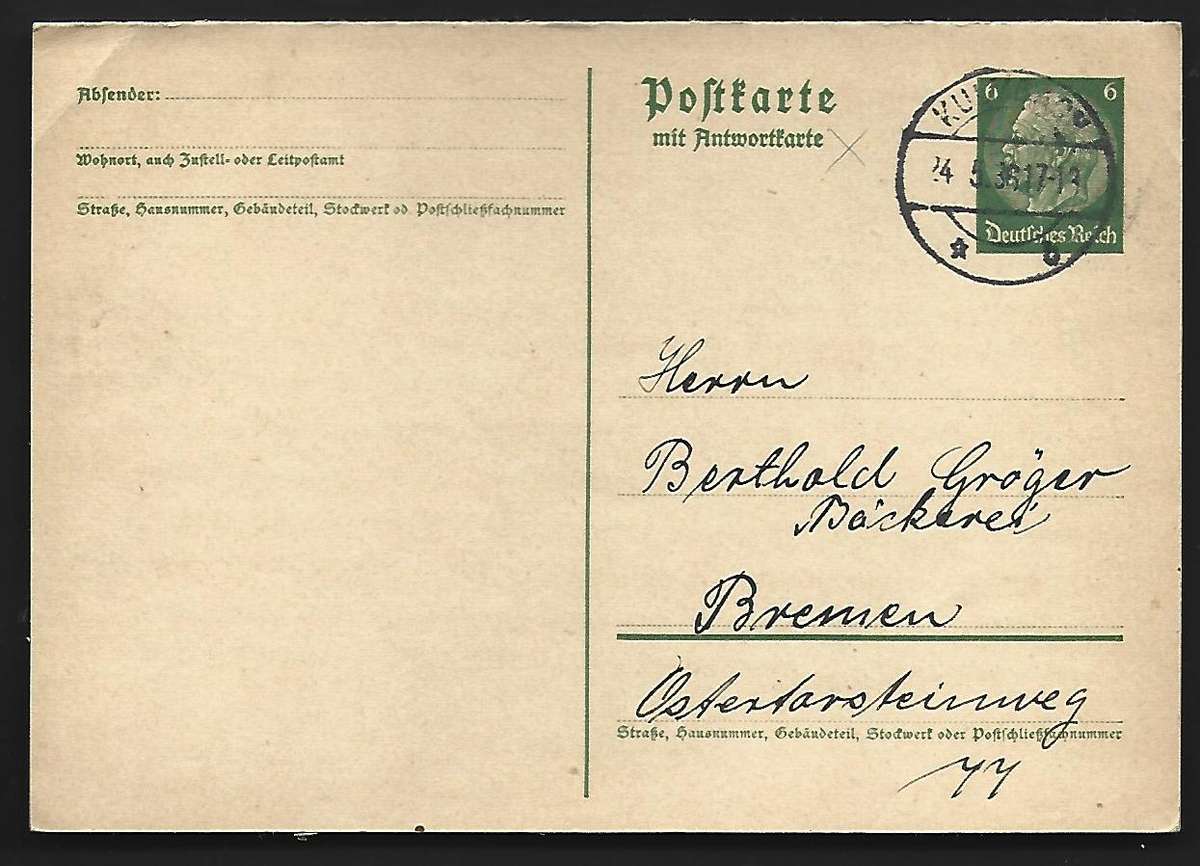 Absender:
Wohnort, auch Zustell- oder Leitpostamt
Straße, Hausnummer, Gebäudeteil, Stockwerk od. Postschließfachnummer
Postkarte
mit Antwortkarte
6 6
Deutsches Reich
Herrn
Berthold Gröger
Bäckerei
Bremen
Ostertorsteinweg
Straße, Hausnummer, Gebäudeteil, Stockwerk oder Postschließfachnummer